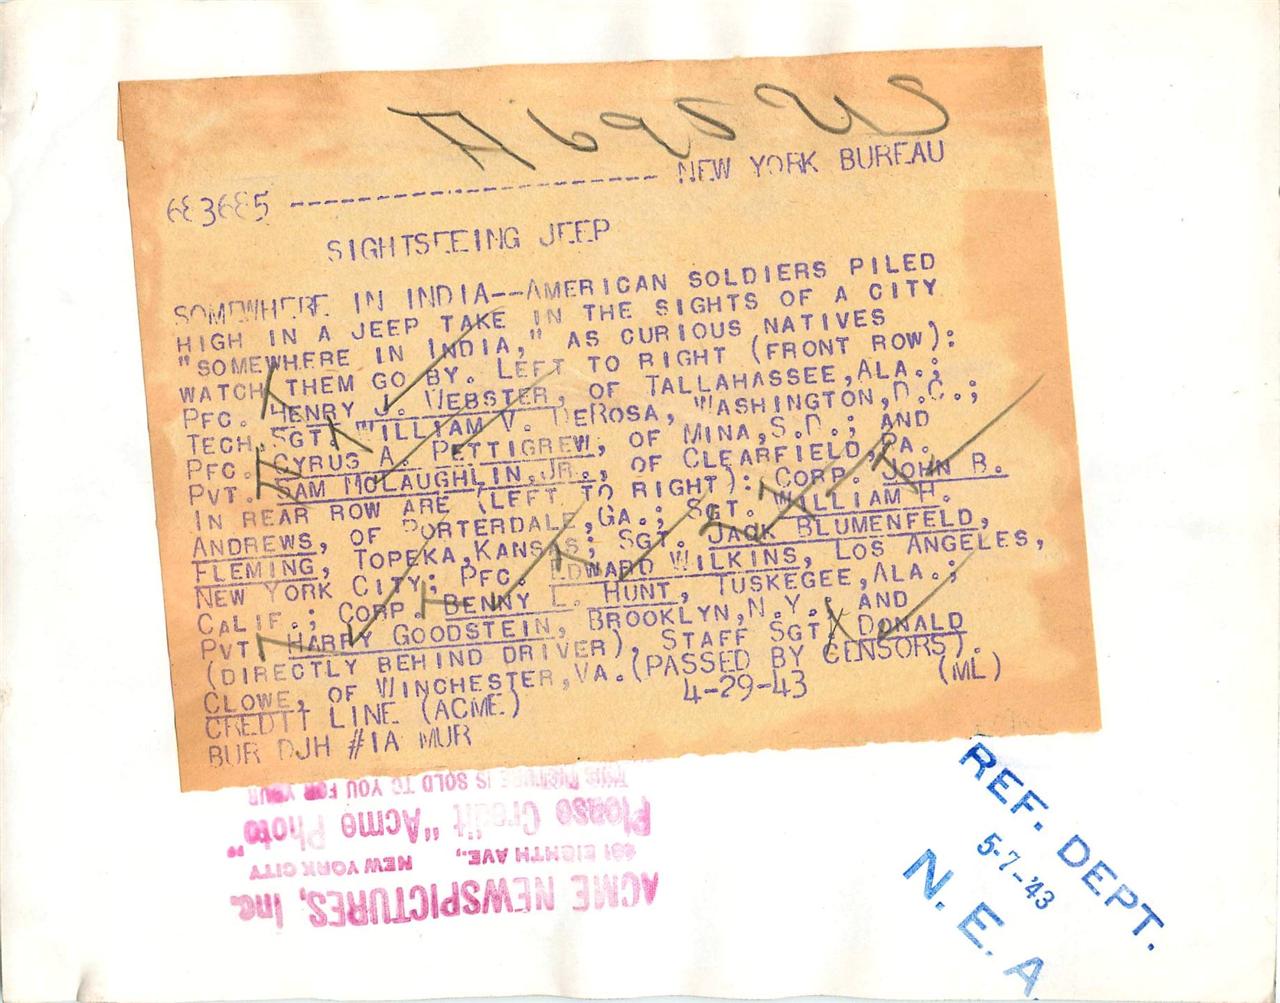 683685 ------------------------- NEW YORK BUREAU
SIGHTSEEING JEEP
SOMEWHERE IN INDIA--AMERICAN SOLDIERS PILED
HIGH IN A JEEP TAKE IN THE SIGHTS OF A CITY
"SOMEWHERE IN INDIA," AS CURIOUS NATIVES
WATCH THEM GO BY. LEFT TO RIGHT (FRONT ROW):
PFC. HENRY J. WEBSTER, OF TALLAHASSEE,ALA.;
TECH.SGT. WILLIAM V. DEROSA, WASHINGTON,D.C.;
PFC. CYRUS A. PETTIGREW, OF MINA,S.D.; AND
PVT. SAM MCLAUGHLIN,JR., OF CLEARFIELD,PA.
IN REAR ROW ARE (LEFT TO RIGHT): CORP. JOHN B.
ANDREWS, OF PORTERDALE,GA.; SGT. WILLIAM H.
FLEMING, TOPEKA,KANSAS; SGT. JACK BLUMENFELD,
NEW YORK CITY; PFC. EDWARD WILKINS, LOS ANGELES,
CALIF.; CORP. BENNY L. HUNT, TUSKEGEE,ALA.;
PVT. HARRY GOODSTEIN, BROOKLYN,N.Y.; AND
(DIRECTLY BEHIND DRIVER), STAFF SGT. DONALD
CLOWE, OF WINCHESTER,VA.(PASSED BY CENSORS).
CREDIT LINE (ACME) 4-29-43 (ML)
BUR DJH #1A MUR
ACME NEWSPICTURES, Inc.
461 EIGHTH AVE., NEW YORK CITY
Please Credit "Acme Photo"
THIS PICTURE IS SOLD TO YOU FOR YOUR
REF. DEPT.
5-7-'43
N. E. A.